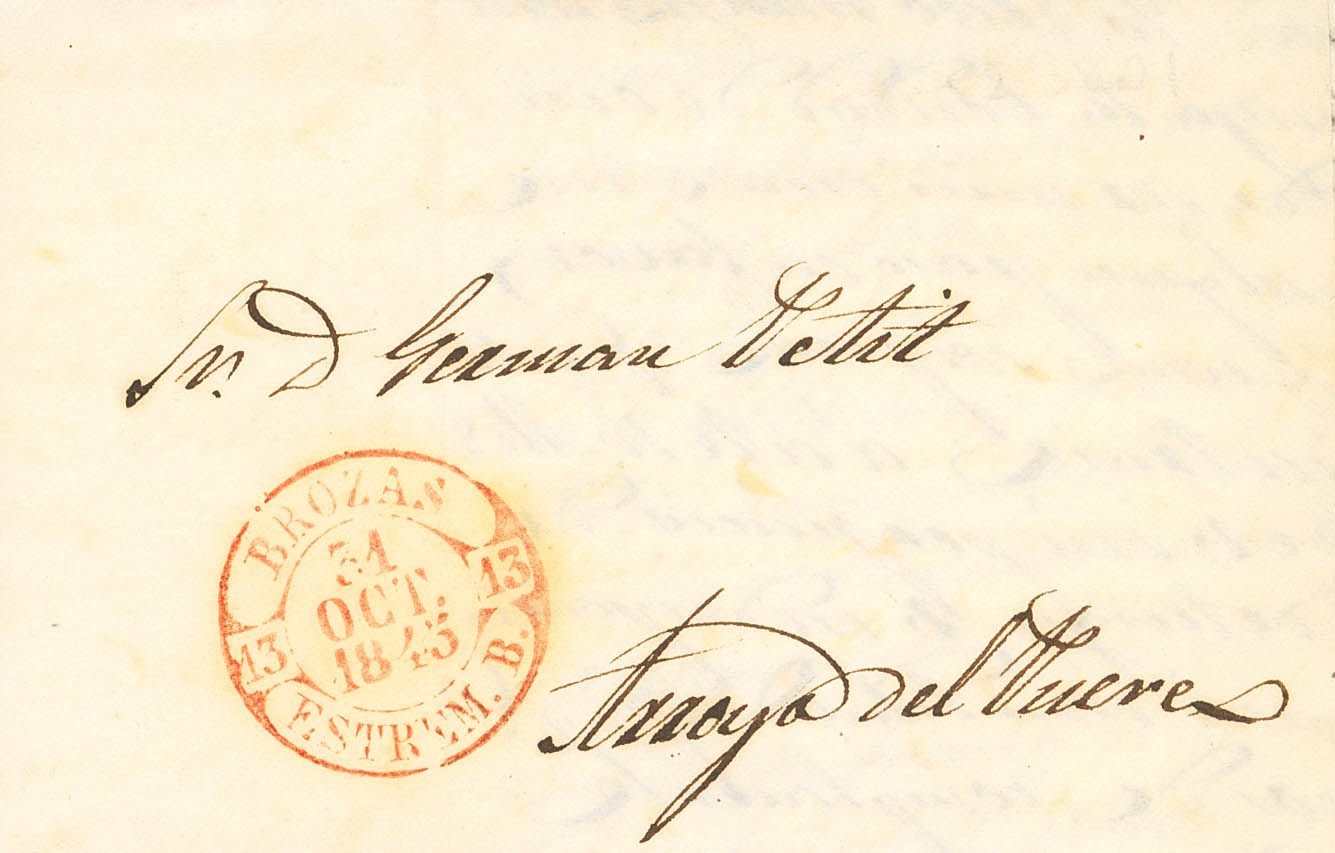 Sr. D German Petit
BROZAS
31
OCT.
1845
13
13
ESTREM. B.
Arroyo del Puerco